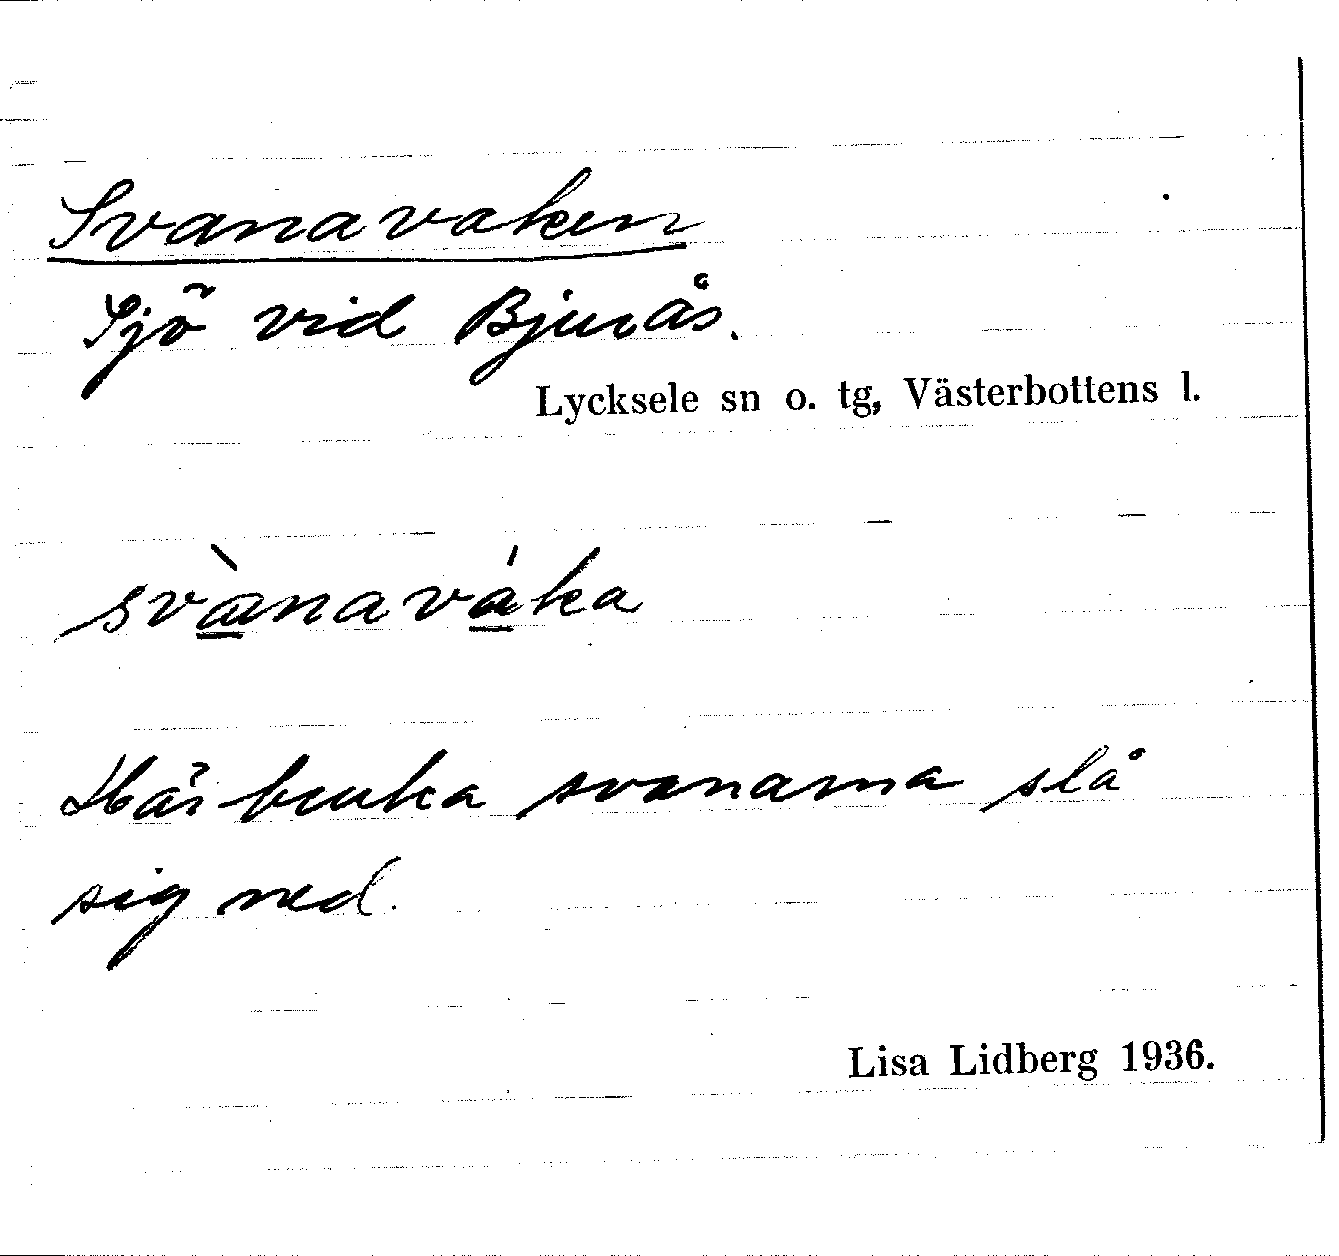 Svanavaken
Sjö vid Bjurås.
Lycksele sn o. tg, Västerbottens l.
svànaváka
Här bruka svanarna slå
sig ned.
Lisa Lidberg 1936.